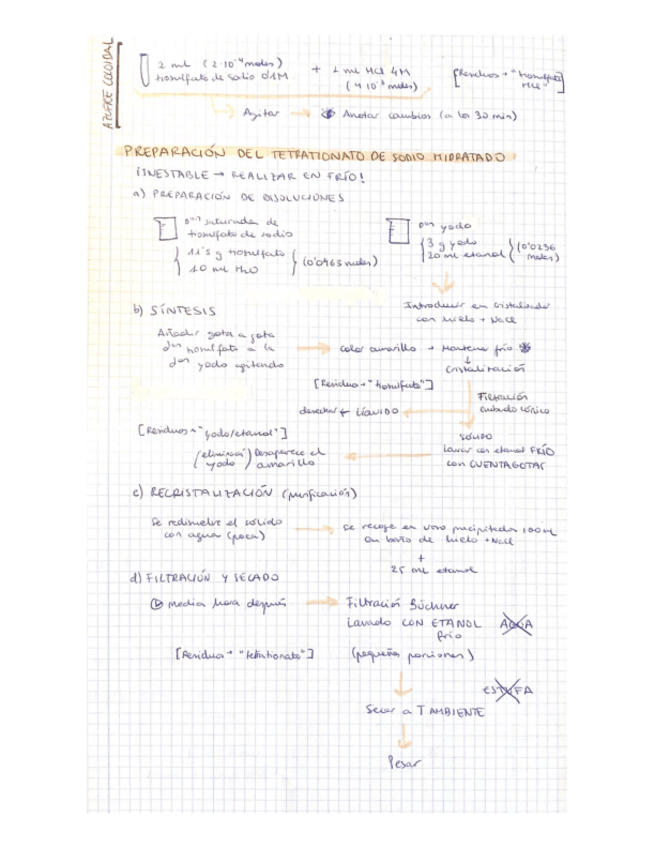 AZUFRE COLOIDAL
2 mL (2·10⁻⁴ moles)
tiosulfato de sodio 0'1M
+ 1 mL HCl 4M
(4·10⁻³ moles)
[Residuos → "tiosulfato
HCl"]
Agitar → Anotar cambios (a los 30 min)
PREPARACIÓN DEL TETRATIONATO DE SODIO HIDRATADO
¡INESTABLE → REALIZAR EN FRÍO!
a) PREPARACIÓN DE DISOLUCIONES
Dºⁿ saturada de
tiosulfato de sodio
11'5 g tiosulfato
10 mL H₂O
(0'0463 moles)
Dºⁿ yodo
3 g yodo
20 mL etanol
(0'0236
moles)
Introducir en cristalizador
con hielo + NaCl
b) SÍNTESIS
Añadir gota a gota
dºⁿ tiosulfato a la
dºⁿ yodo agitando
→ color amarillo → Mantener frío
↓
Cristalización
[Residuo → "tiosulfato"]
Filtración
embudo cónico
desechar ← LÍQUIDO
SÓLIDO
[Residuos → "yodo/etanol"]
Lavar con etanol FRÍO
con CUENTAGOTAS
(eliminación yodo) Desaparece el
amarillo
c) RECRISTALIZACIÓN (purificación)
Se redisuelve el sólido
con agua (poca)
→ Se recoge en vaso precipitados 100 mL
en baño de hielo + NaCl
+
25 mL etanol
d) FILTRACIÓN Y SECADO
media hora después → Filtración Büchner
Lavado CON ETANOL AGUA
frío
[Residuo → "tetrationato"] (pequeñas porciones)
ESTUFA
Secar a T AMBIENTE
Pesar